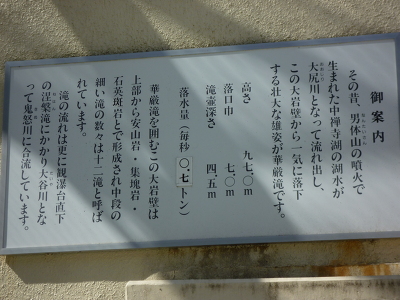 御案内
その昔、男体山の噴火で
生まれた中禅寺湖の湖水が
大尻川となって流れ出し、
この大岩壁から一気に落下
する壮大な雄姿が華厳滝です。
高さ 九七、〇m
落口巾 七、〇m
滝壺深さ 四、五m
落水量(毎秒〇、七トン)
華厳滝を囲むこの大岩壁は
上部から安山岩・集塊岩・
石英斑岩とで形成され中段の
細い滝の数々は十二滝と呼ば
れています。
滝の流れは更に観瀑台直下
の涅槃滝にかかり大谷川とな
って鬼怒川に合流しています。